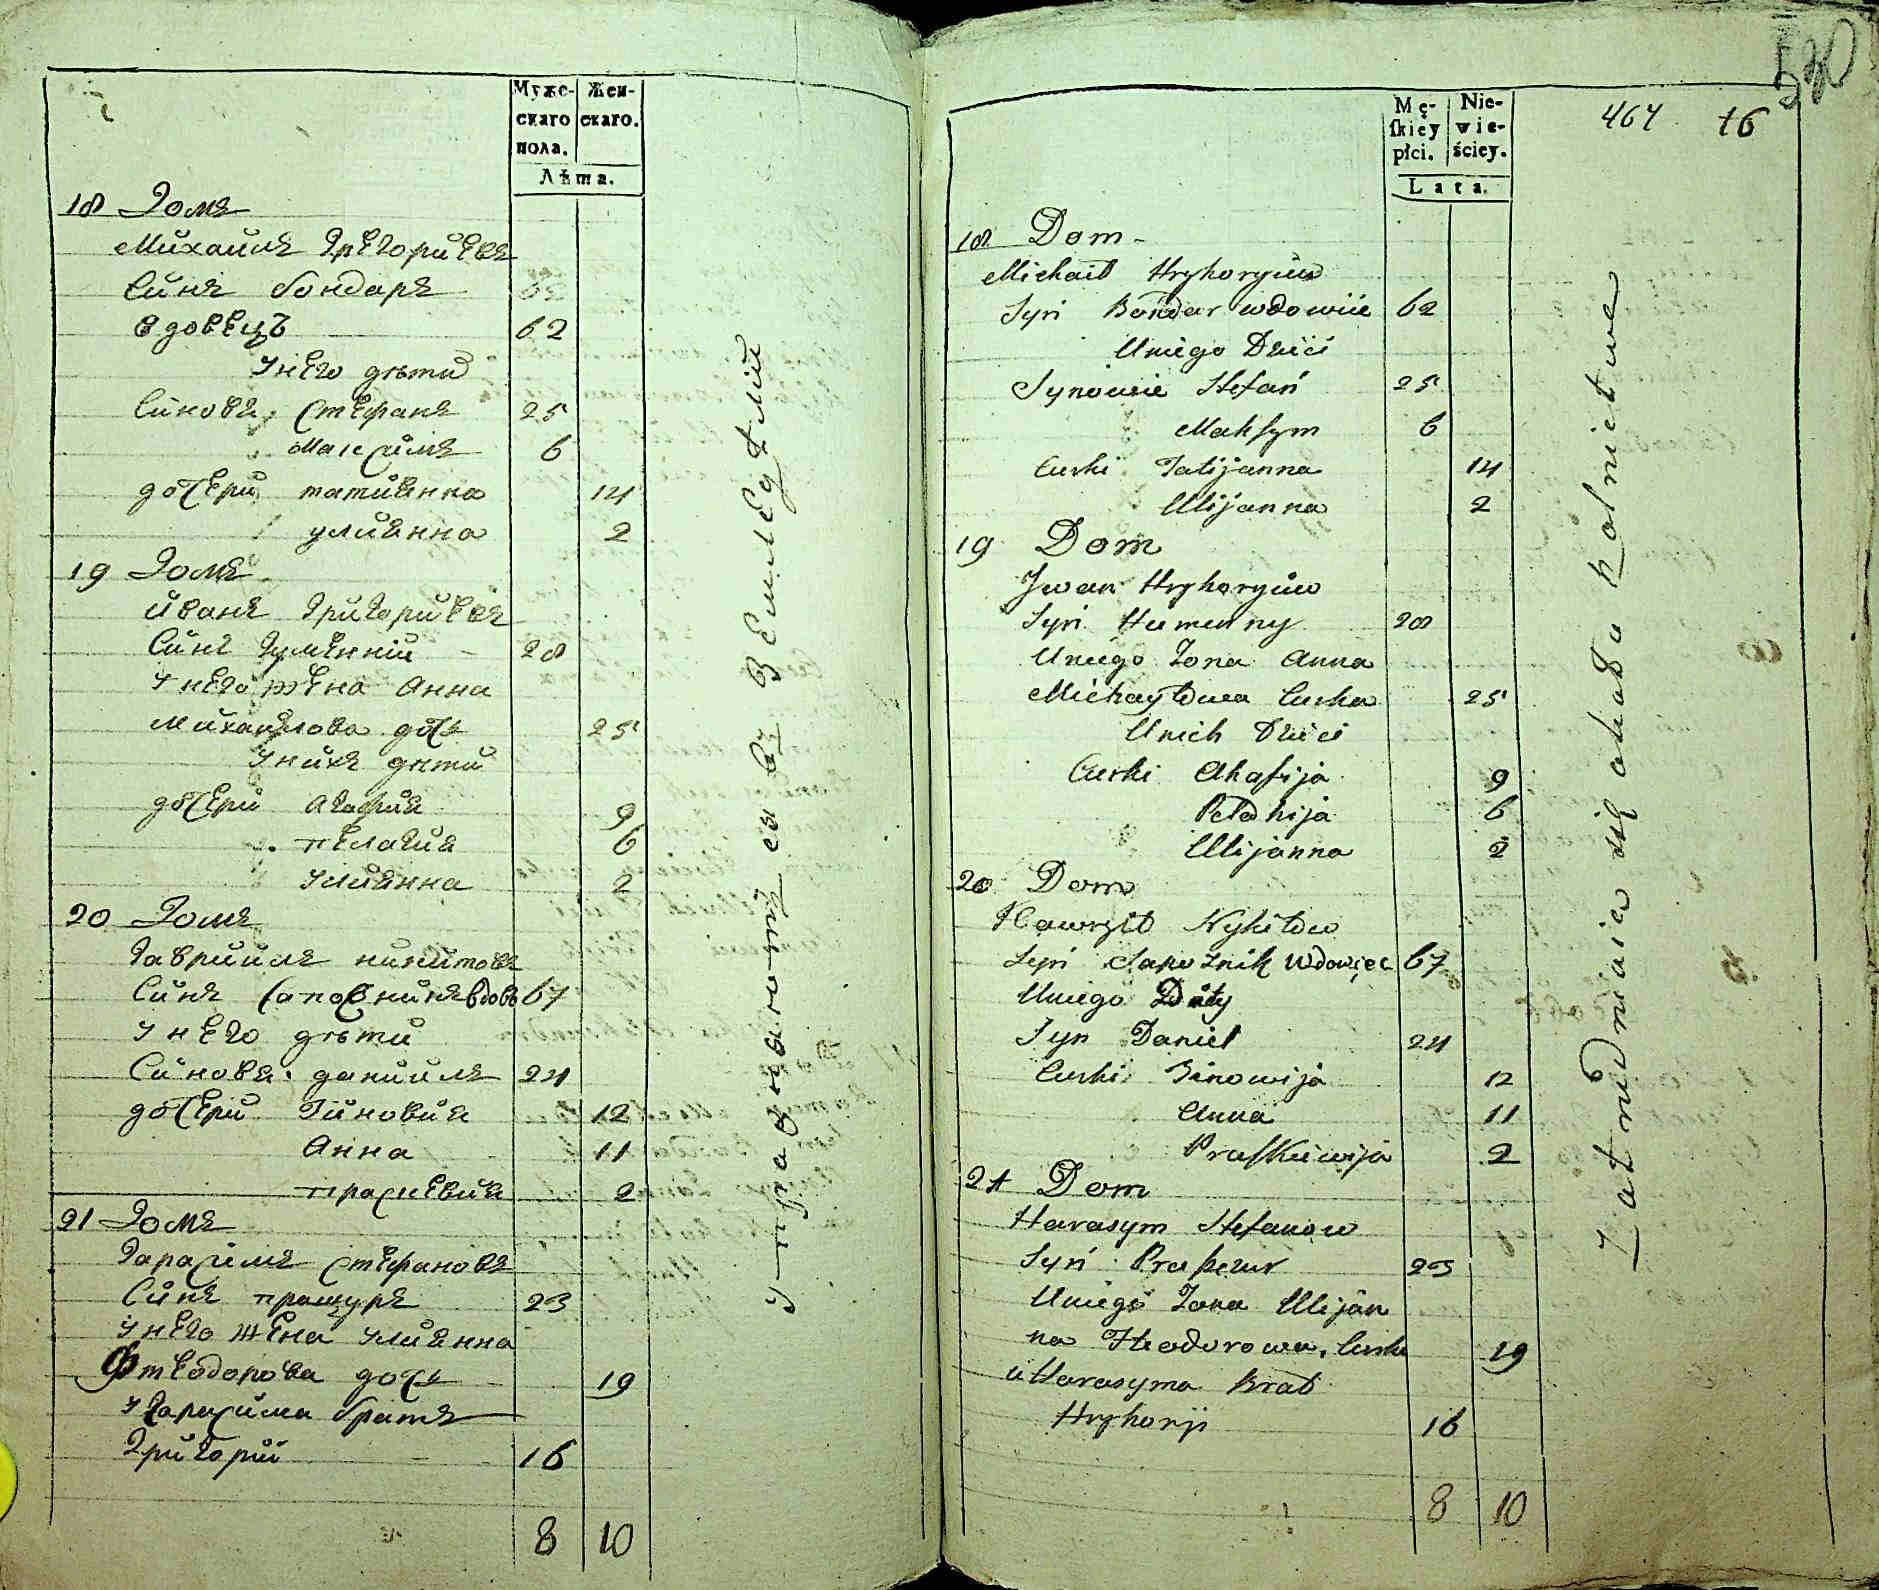 Муже-
скаго
пола.
Жен-
скаго.
Лѣта.
18 Домъ
Михаилъ Григориевъ
Синъ бондаръ
вдовецъ 62
У него дѣти
Синове, Стефанъ 25
Максимъ 6
дочери татиянна 14
улиянна 2
19 Домъ
Иванъ Григориевъ
Синъ Гуменній 28
У него жена Анна
Михаилова дочь 25
У нихъ дѣти
дочери Агафия 9
пелагия 6
Улиянна 2
20 Домъ
Гавриилъ никитовъ
Синъ Сапожникъ вдовъ 67
У него дѣти
Синове. данииль 24
дочери Зиновия 12
Анна 11
праскевия 2
21 Домъ
Гарасимъ Стефановъ
Синъ пращуръ 23
У него жена улиянна
Фтеодорова дочь 19
У Гарасима братъ
Григорий 16
8 10
упражняютъ ся въ Земледѣлии
530
Mę-
ſkiey
płci.
Nie-
wie-
ściey.
Lata.
464 16
18 Dom
Michaił Hryhoryiuw
Syn Bondar wdowiic 62
Uniego Dzieci
Synowie Stefan 25
Makſym 6
Curki Tatijanna 14
Ulijanna 2
19 Dom
Jwan Hryhoryiuw
Syn Humenny 28
Uniego Zona Anna
Michayłowa Curka 25
Unich Dzieci
Curki Ahafija 9
Pełahija 6
Ulijanna 2
20 Dom
Hawryił Nykitow
Syn Sapoznik wdowięc 67
Uniego Dzity
Syn Danieł 24
Curki Zinowija 12
Anna 11
Praſkiewija 2
21 Dom
Harasym Stefanow
Syn Praszczur 23
Uniego Zona Ulijan
na Fteodorowa, Curka 19
u Harasyma Brat
Hryhorji 16
8 10
Zatrudniaią się około Rolnictwa